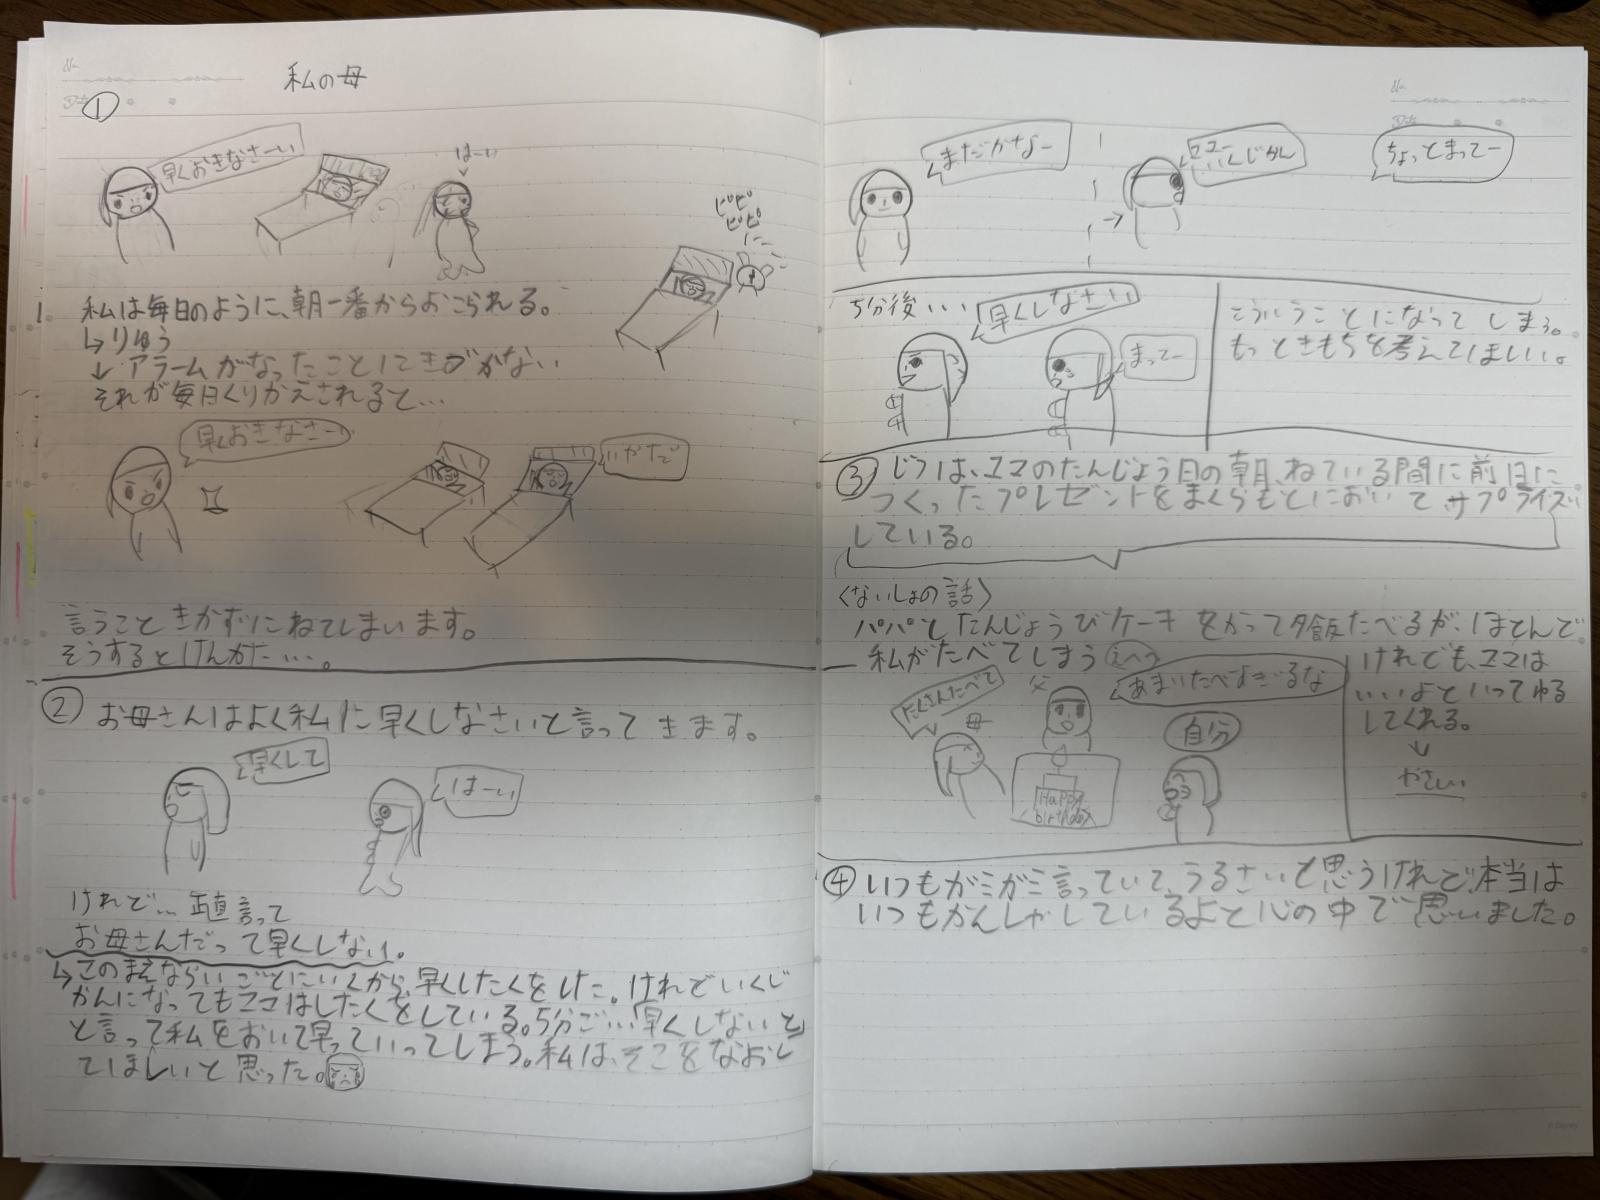 私の母
①
早くおきなさーい
はーい
ピピピピ
私は毎日のように、朝一番からおこられる。
↳りゆう
↓アラームがなったことにきずがない
それが毎日くりかえされると…
早くおきなさー
言うこときかずにねてしまいます。
そうするとけんかだ…。
② お母さんはよく私に早くしなさいと言ってきます。
早くして
はーい
けれど…正直言って
お母さんだって早くしない。
↳このまえならいごとにいくから、早くしたくをした。けれどいくじ
かんになってもママはしたくをしている。5分ご…「早くしないと」
と言って私をおいて早っていってしまう。私は、そこをなおし
てほしいと思った。
まだかなー
いくじかん
ちょっとまってー
5分後…
早くしなさい
まってー
こういうことになってしまう。
もっときもちを考えてほしい。
③ じつは、ママのたんじょう日の朝、ねている間に前日に
つくったプレゼントをまくらもとにおいてサプライズ
している。
〈ないしょの話〉
パパとたんじょうびケーキをかって夕飯たべるが、ほとんど
私がたべてしまう えへっ
たくさんたべて
母
父
あまりたべすぎるな
自分
Happy
birthday
けれども、ママは
いいよといってゆる
してくれる。
↓
やさしい
④ いつもガミガミ言っていて、うるさいと思うけれど、本当は
いつもかんしゃしているよと心の中で思いました。
© Disney